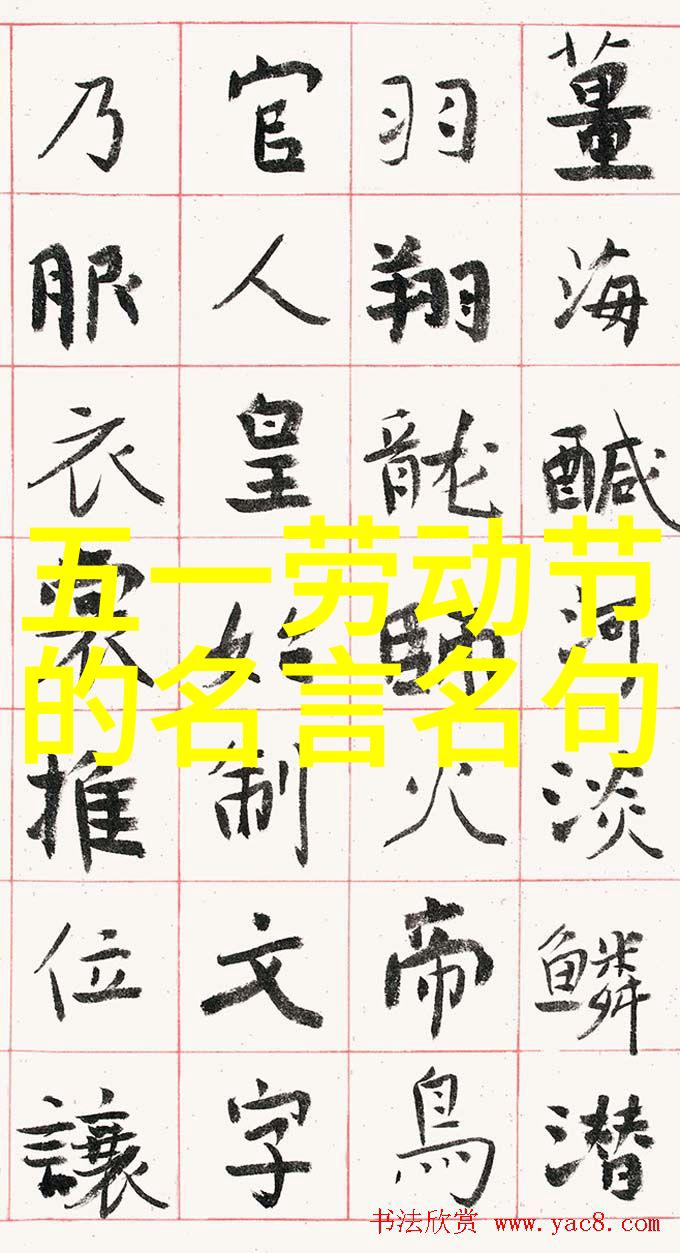 薑海醎河淡鱗潜
羽翔龍師火帝鳥
官人皇始制文字
乃服衣裳推位讓
五一劳动节
的名言名句
书法欣赏 www.yac8.com